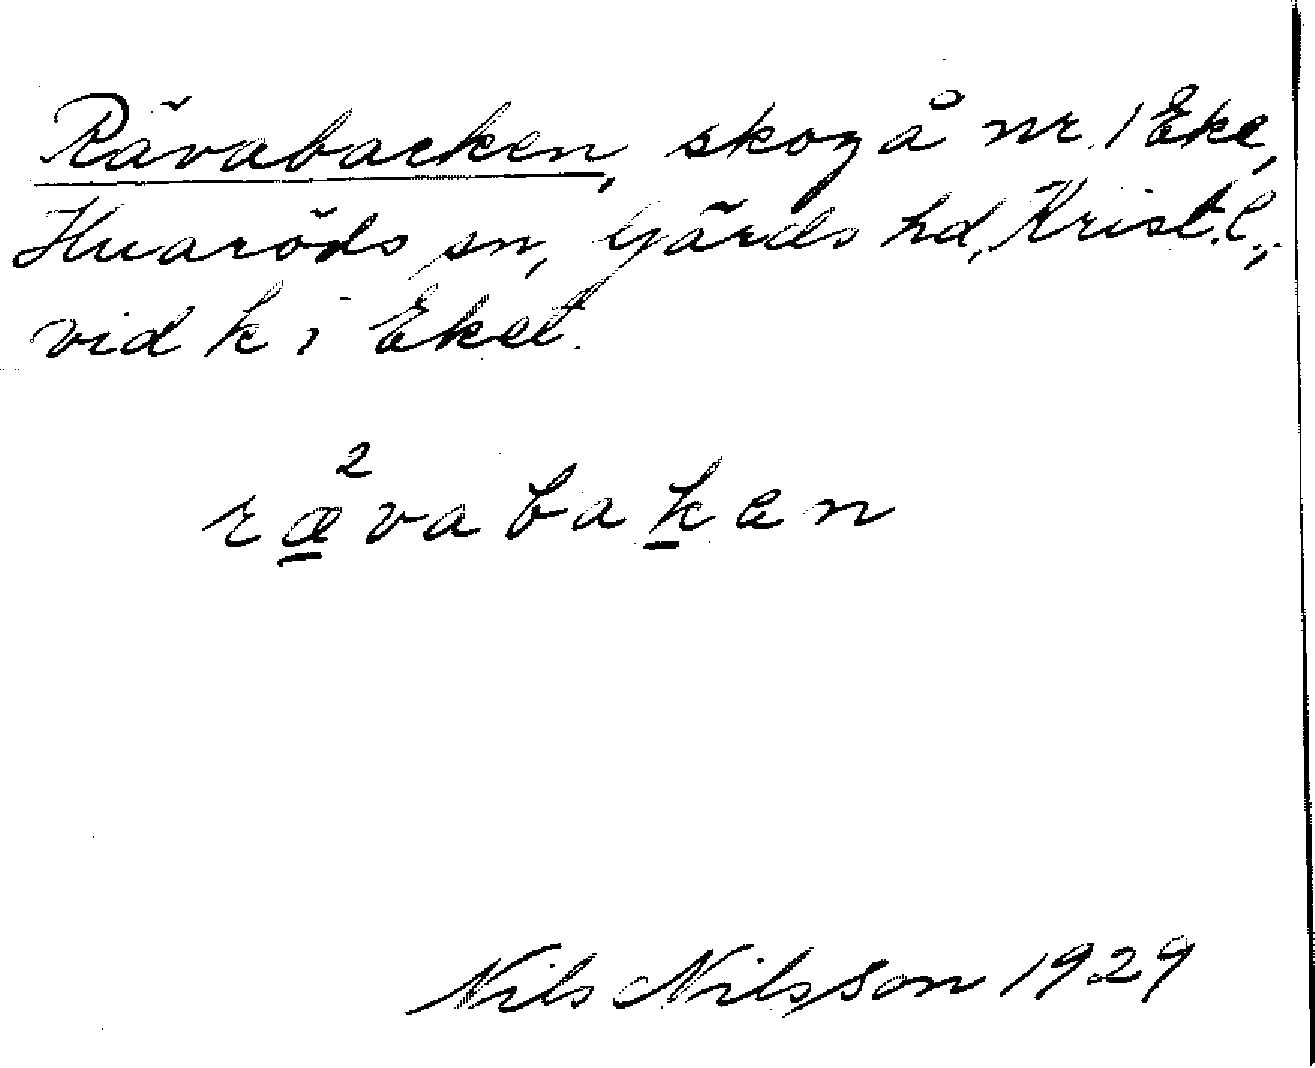 Rävabacken, skog å nr. 1 Eke,
Huaröds sn, Gärds hd, Krist. l.,
vid k i Eket.
2
rævabaken
Nils Nilsson 1929